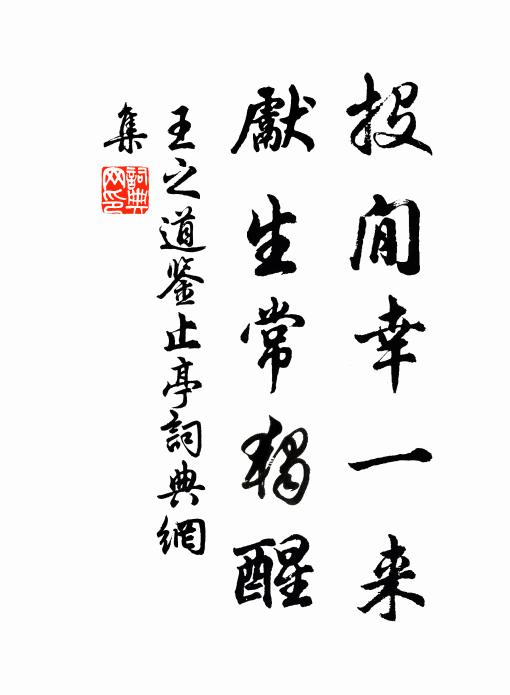 投閒幸一来
獻生常獨醒
王之道鉴止亭詞典網
集
詞典网印